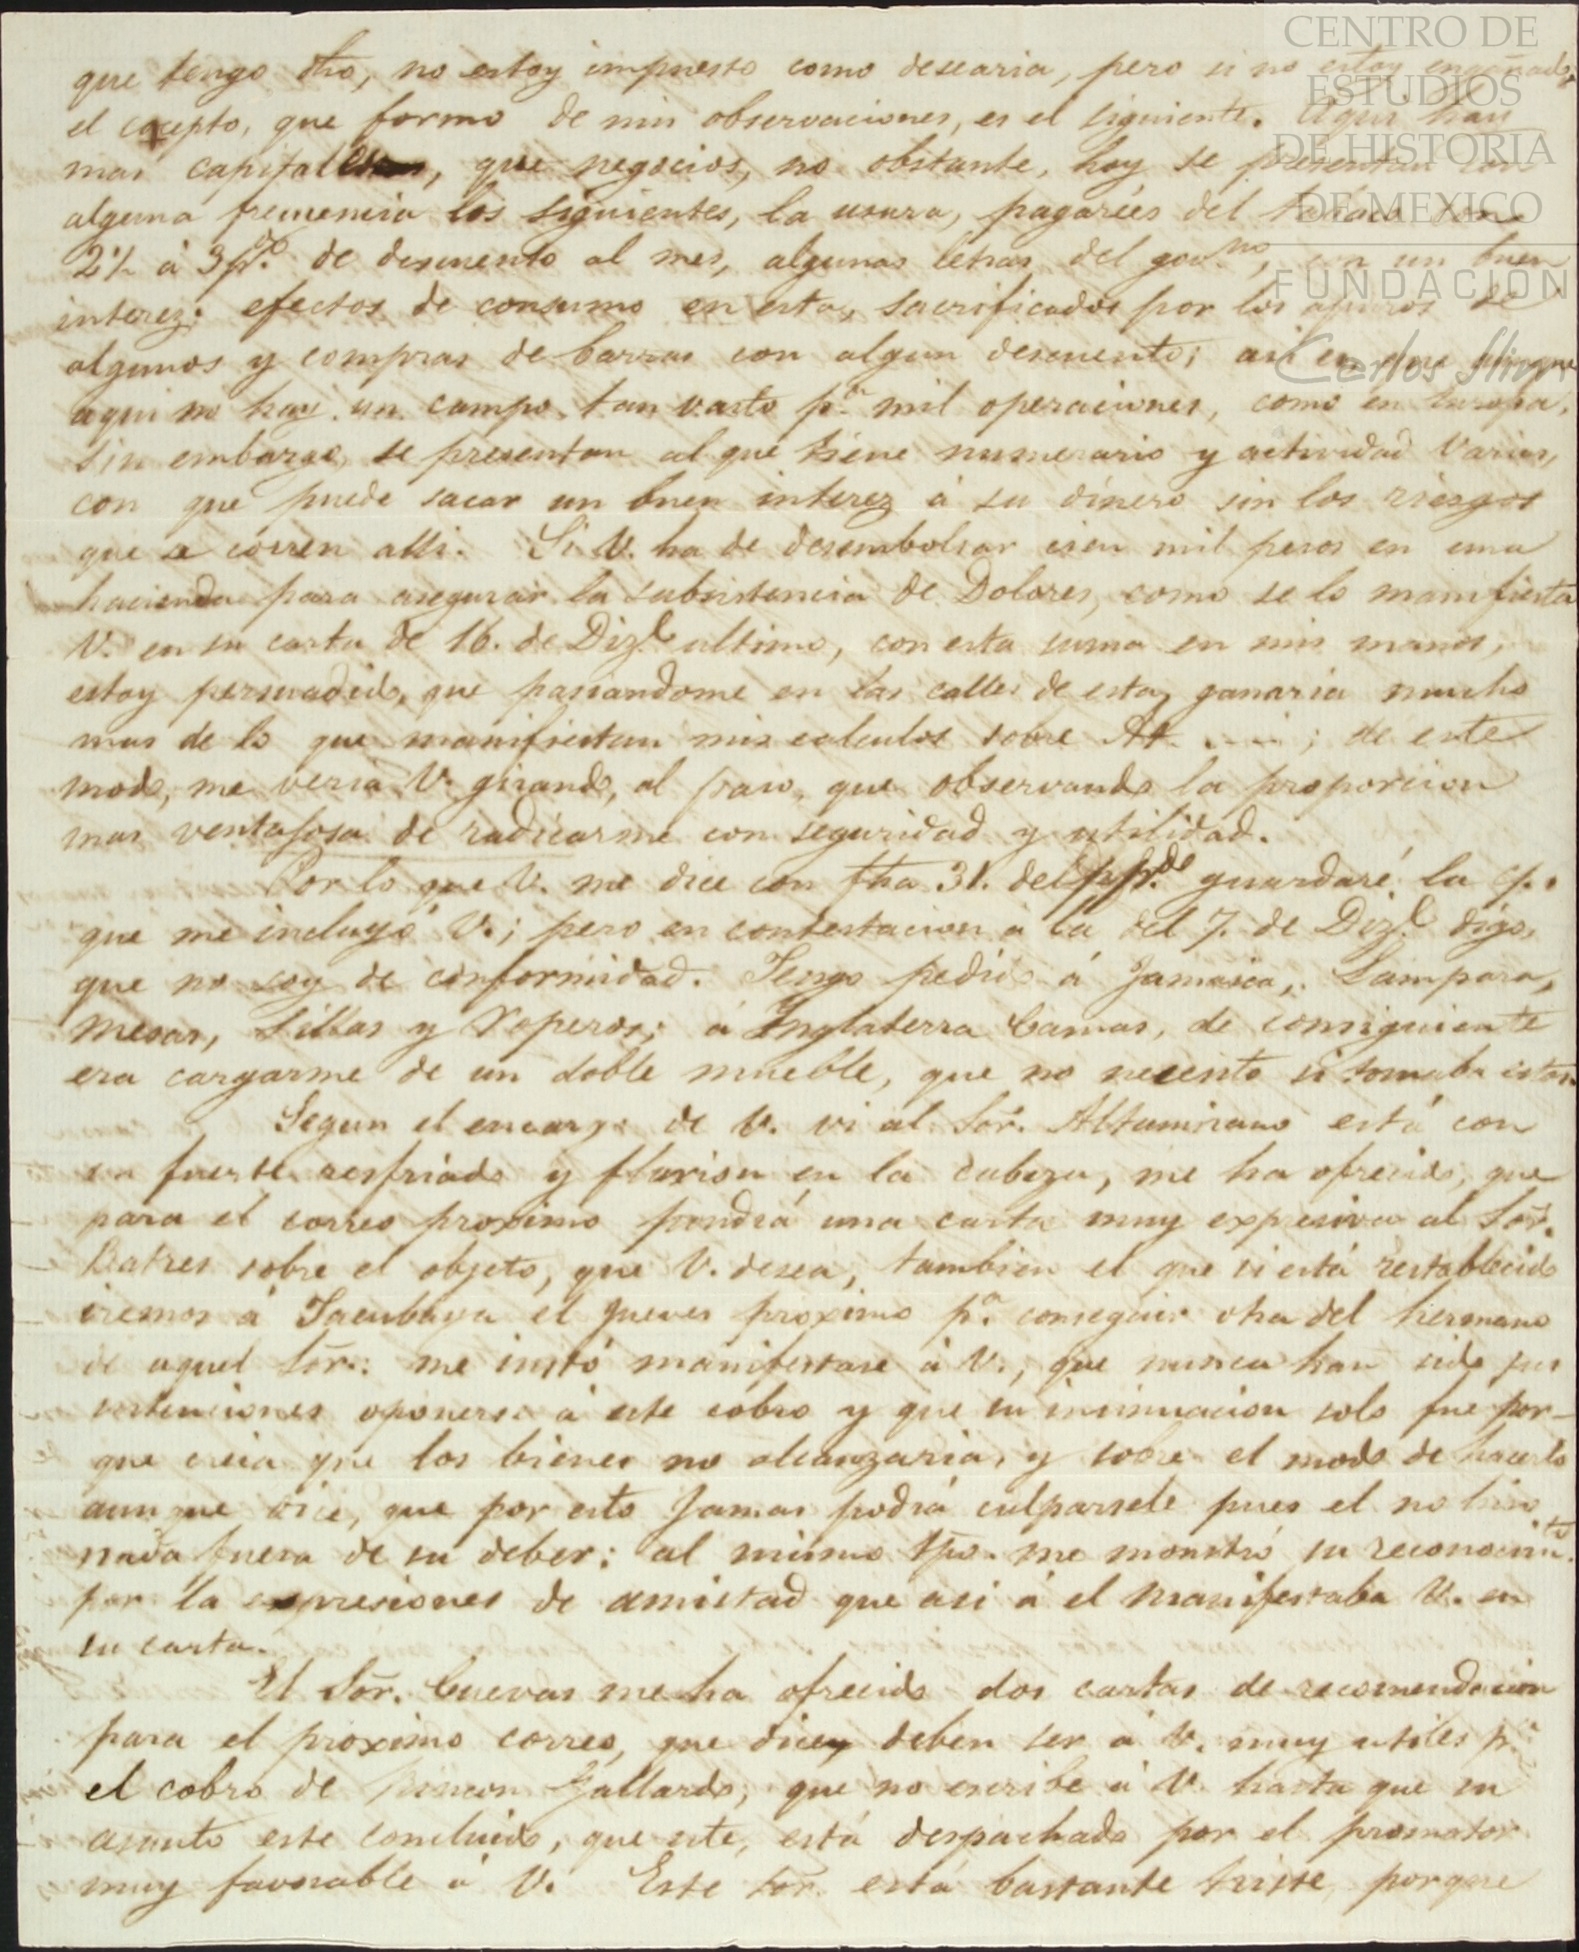 CENTRO DE
ESTUDIOS
DE HISTORIA
DE MEXICO
FUNDACIÓN
Carlos Slim
que tengo dho, no estoy impuesto como desearia, pero si no estoy engañado,
el cocepto, que formo de mis observaciones, es el siguiente. Aqui hay
mas capitales, que negocios, no obstante, hoy se presentan con
alguna frecuencia los siguientes, la usura, pagarées del tabaco con
2½ á 3 p.% de descuento al mes, algunas letras del gov.no, con un buen
interez: efectos de consumo en esta, sacrificados por los apuros de
algunos y compras de barras con algun descuento; asi es que aunque
aqui no hay un campo tan vasto p.a mil operaciones, como en Europa,
sin embargo, se presentan al que tiene numerario y actividad varias,
con que puede sacar un buen interez á su dinero sin los riesgos
que se corren alli. Si V. ha de desembolsar cien mil pesos en una
hacienda para asegurar la subsistencia de Dolores, como se lo manifiesta
V. en su carta de 16. de Dizе ultimo, con esta suma en mis manos,
estoy persuadido, que paseandome en las calles de esta, ganaria mucho
mas de lo que manifiestan mis calculos sobre At. ....; de este
modo, me veria V. girando, al paso, que observando la proporcion
mas ventajosa de radicarme con seguridad y utilidad.
Por lo que V. me dice con fha 31. del pp.do guardaré la
que me incluyó V.; pero en contestacion á la del 7. de Dize digo,
que no soy de conformidad. Tengo pedido á Jamaica, Lampara,
mesas, sillas y roperos; á Inglaterra Camas, de consiguiente
era cargarme de un doble mueble, que no necesito si tomaba estos.
Segun el encargo de V. vi al Sor. Altamirano está con
un fuerte resfriado y fluxion en la cabeza, me ha ofrecido, que
para el correo proximo pondrá una carta muy expresiva al Sor.
Batres sobre el objeto, que V. desea, tambien el que si está restablecido
iremos á Tacubaya el Jueves proximo p.a conseguir otra del hermano
de aquel Sor.: me instó manifestase á V., que nunca han sido sus
intenciones oponerse á este cobro y que su insinuacion solo fue por-
que creia que los bienes no alcanzaria, y sobre el modo de hacerlo
aunque dice, que por esto Jamas podrá culparsele pues el no hizo
nada fuera de su deber: al mismo tpo. me monstró su reconocim.to
por la expresiones de amistad que asi á el manifestaba V. en
su carta.
El Sor. Cuevas me ha ofrecido dos cartas de recomendacion
para el proximo correo, que dicey deben ser á V. muy utiles p.a
el cobro de Rincon Gallardo; que no escribe á V. hasta que su
asunto este concluido, que este, está despachado por el promotor
muy favorable á V. Este sor. está bastante triste, porque